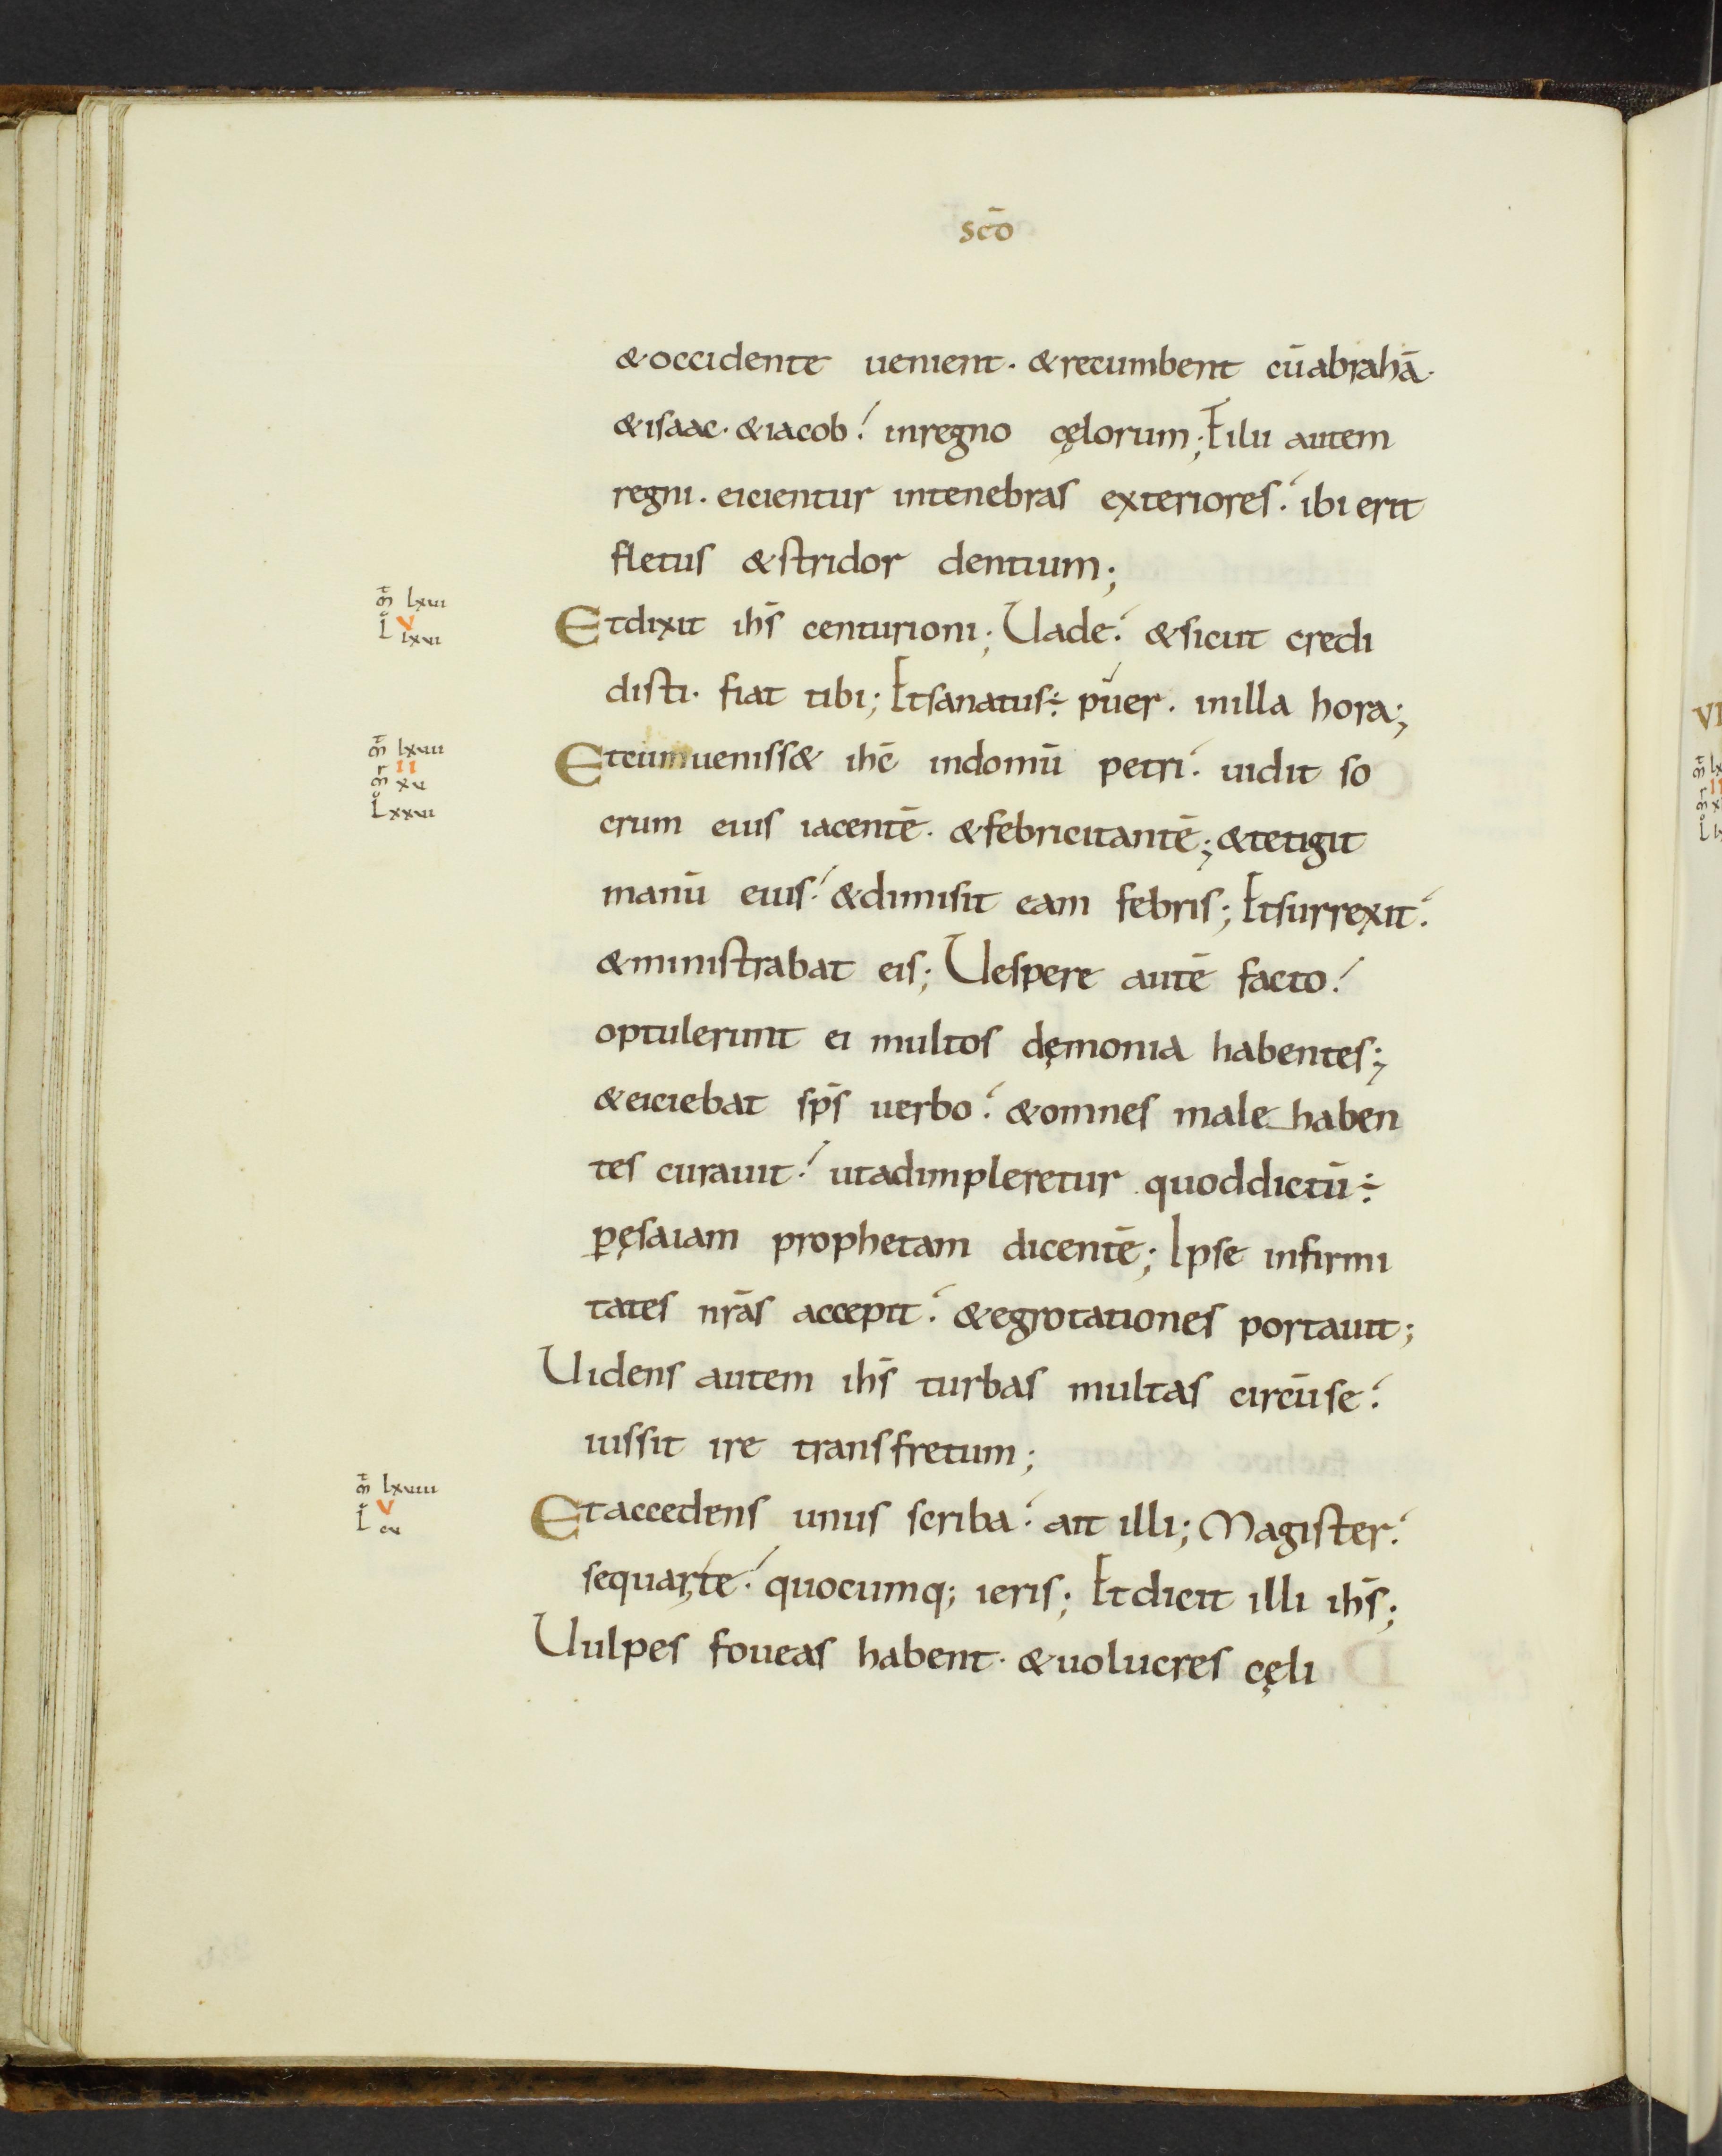 scō
& occidente uenient · & recumbent cū abrahā ·
& isaac · & iacob · in regno cęlorum ; Filii autem
regni · eicientur in tenebras exteriores · ibi erit
fletus & stridor dentium ;
mt lxui
V
lo lxui
Et dixit ihs̄ centurioni ; Uade · & sicut credi
disti · fiat tibi ; Et sanatus ÷ puer · in illa hora ;
mt lxuii
II
mr xu
lo xxui
Et cum ueniss& ihc̄ in domū petri · uidit so
crum eius iacentē · & febricitantē ; & tetigit
manū eius · & dimisit eam febris ; Et surrexit ·
& ministrabat eis ; Uespere autē facto ·
optulerunt ei multos dęmonia habentes ;
& eiciebat sps̄ uerbo · & omnes male haben
tes curauit · ut adimpleretur quod dictū ÷
p̱ ęsaiam prophetam dicentē ; Ipse infirmi
tates nrās accepit · & egrotationes portauit ;
Uidens autem ihs̄ turbas multas circū se ·
iussit ire trans fretum ;
mt lxuiii
V
lo cu
Et accedens unus scriba · ait illi ; Magister ·
sequar te · quocumq; ieris ; Et dicit illi ihs̄ ;
Uulpes foueas habent · & uolucres cęli